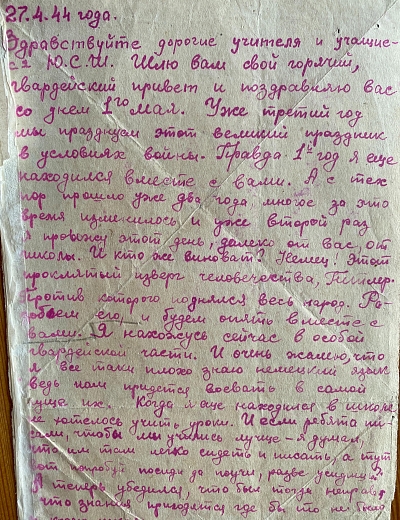 27.4.44 года.
Здравствуйте дорогие учителя и учащие-
ся Ю.С.Ш. Шлю вам свой горячий,
гвардейский привет и поздравляю вас
со днем 1го Мая. Уже третий год
мы празднуем этот великий праздник
в условиях войны. Правда 1й год я еще
находился вместе с вами. А с тех
пор прошло уже два года многое за это
время изменилось и уже второй раз
я провожу этот день, далеко от вас, от
школы. И кто же виноват? Немец! Этот
проклятый изверг человечества, Гитлер.
Против которого поднялся весь народ. Ра-
зобьем его, и будем опять вместе с
вами. Я нахожусь сейчас в особой
гвардейской части. И очень жалею, что
я все таки плохо знаю немецкий язык
ведь нам придется воевать в самой
гуще их. Когда я еще находился в школе
не хотелось учить уроки. И если ребята пи-
сали, чтобы мы учились лучше - я думал,
что им там легко сидеть и писать, а тут
вот попробуй посиди да поучи, разве усидишь?
А теперь убедился, что был тогда неправ
что знания пригодятся где бы то не было